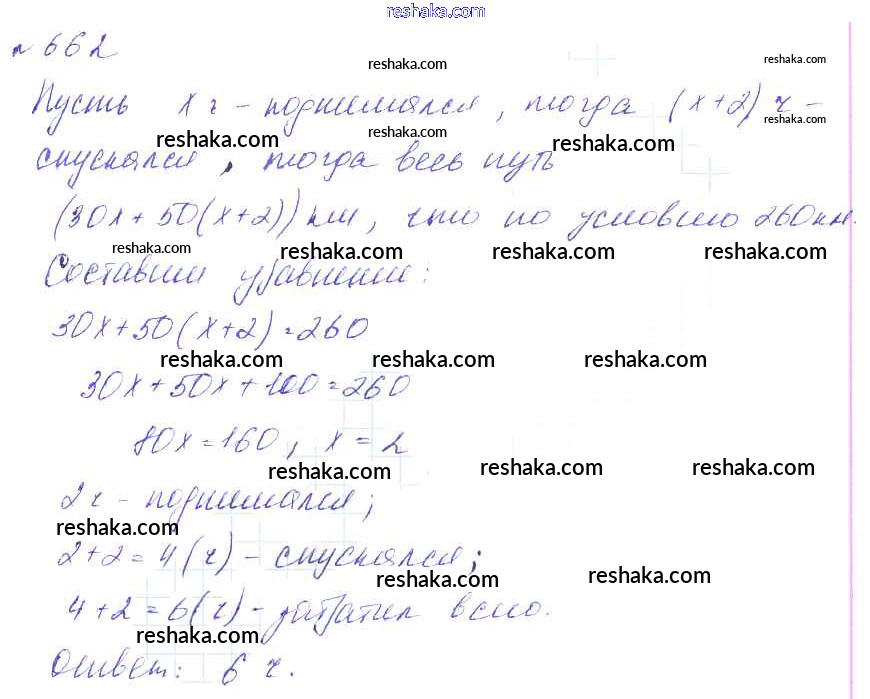 reshaka.com
№ 662
reshaka.com
reshaka.com
Пусть х ч - поднимался, тогда (х+2) ч -
reshaka.com
reshaka.com
reshaka.com
reshaka.com
спускался, тогда весь путь
(30х+50(х+2)) км, что по условию 260 км.
reshaka.com
reshaka.com
reshaka.com
reshaka.com
Составим уравнение:
30х+50(х+2)=260
reshaka.com
reshaka.com
reshaka.com
30х+50х+100=260
80х=160; х=2
reshaka.com
reshaka.com
reshaka.com
2 ч - поднимался;
reshaka.com
2+2=4(ч) - спускался;
reshaka.com
reshaka.com
4+2=6(ч) - затратил всего.
reshaka.com
Ответ: 6 ч.